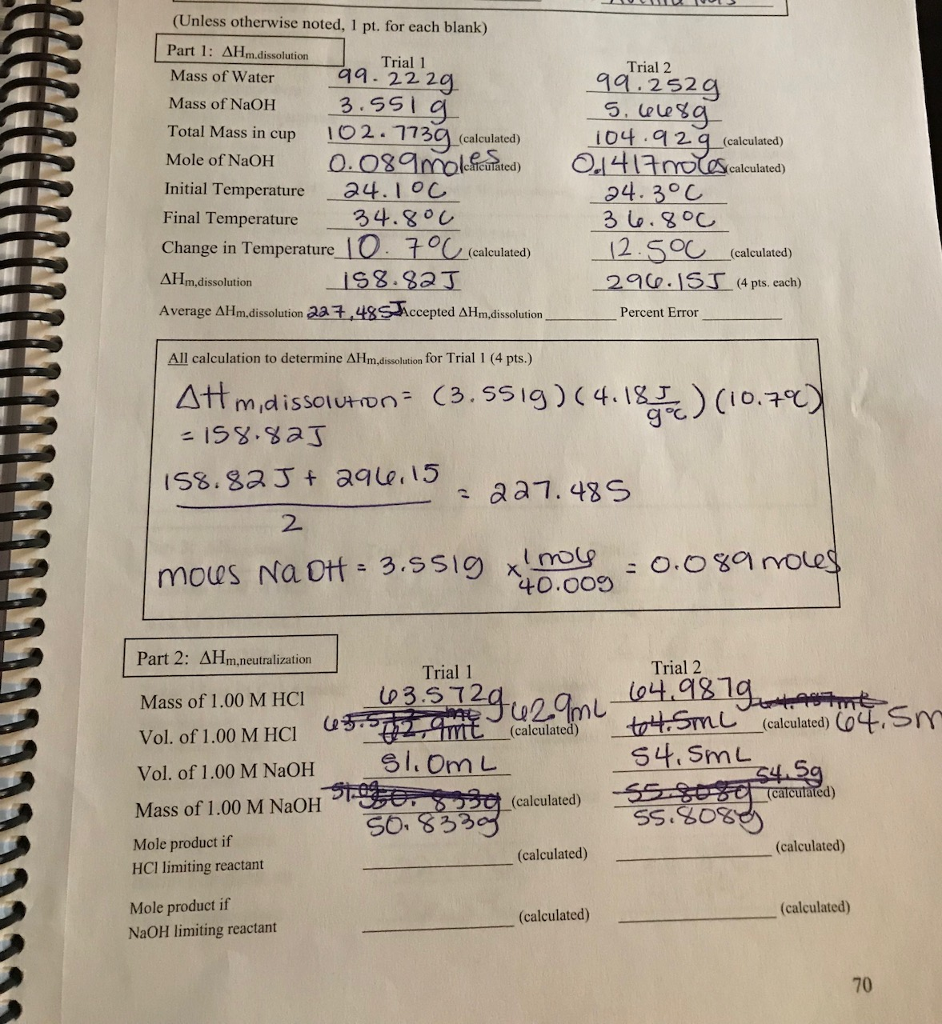 (Unless otherwise noted, 1 pt. for each blank)
Part 1: ΔHm,dissolution
Trial 1 Trial 2
Mass of Water 99.222g 99.252g
Mass of NaOH 3.551 g 5.668g
Total Mass in cup 102.773g (calculated) 104.92g (calculated)
Mole of NaOH 0.089moles (calculated) 0.1417moles (calculated)
Initial Temperature 24.1°C 24.3°C
Final Temperature 34.8°C 36.8°C
Change in Temperature 10.7°C (calculated) 12.5°C (calculated)
ΔHm,dissolution 158.82J 296.15J (4 pts. each)
Average ΔHm,dissolution 227,485J Accepted ΔHm,dissolution ________ Percent Error ________
All calculation to determine ΔHm,dissolution for Trial 1 (4 pts.)
ΔHm,dissolution = (3.551g)(4.18 J/g°C)(10.7°C)
= 158.82J
158.82J + 296.15
= 227.485
2
moles NaOH = 3.551g x 1 mole/40.00g = 0.089 moles
Part 2: ΔHm,neutralization
Trial 1 Trial 2
Mass of 1.00 M HCl 63.572g 64.987g
Vol. of 1.00 M HCl 62.9mL (calculated) 64.5mL (calculated) 64.5m
Vol. of 1.00 M NaOH 51.0mL 54.5mL
54.5g
Mass of 1.00 M NaOH 51.0g 50.833g (calculated) 55.808g (calculated)
50.833g 55.808g
Mole product if
HCl limiting reactant ________ (calculated) ________ (calculated)
Mole product if
NaOH limiting reactant ________ (calculated) ________ (calculated)
70